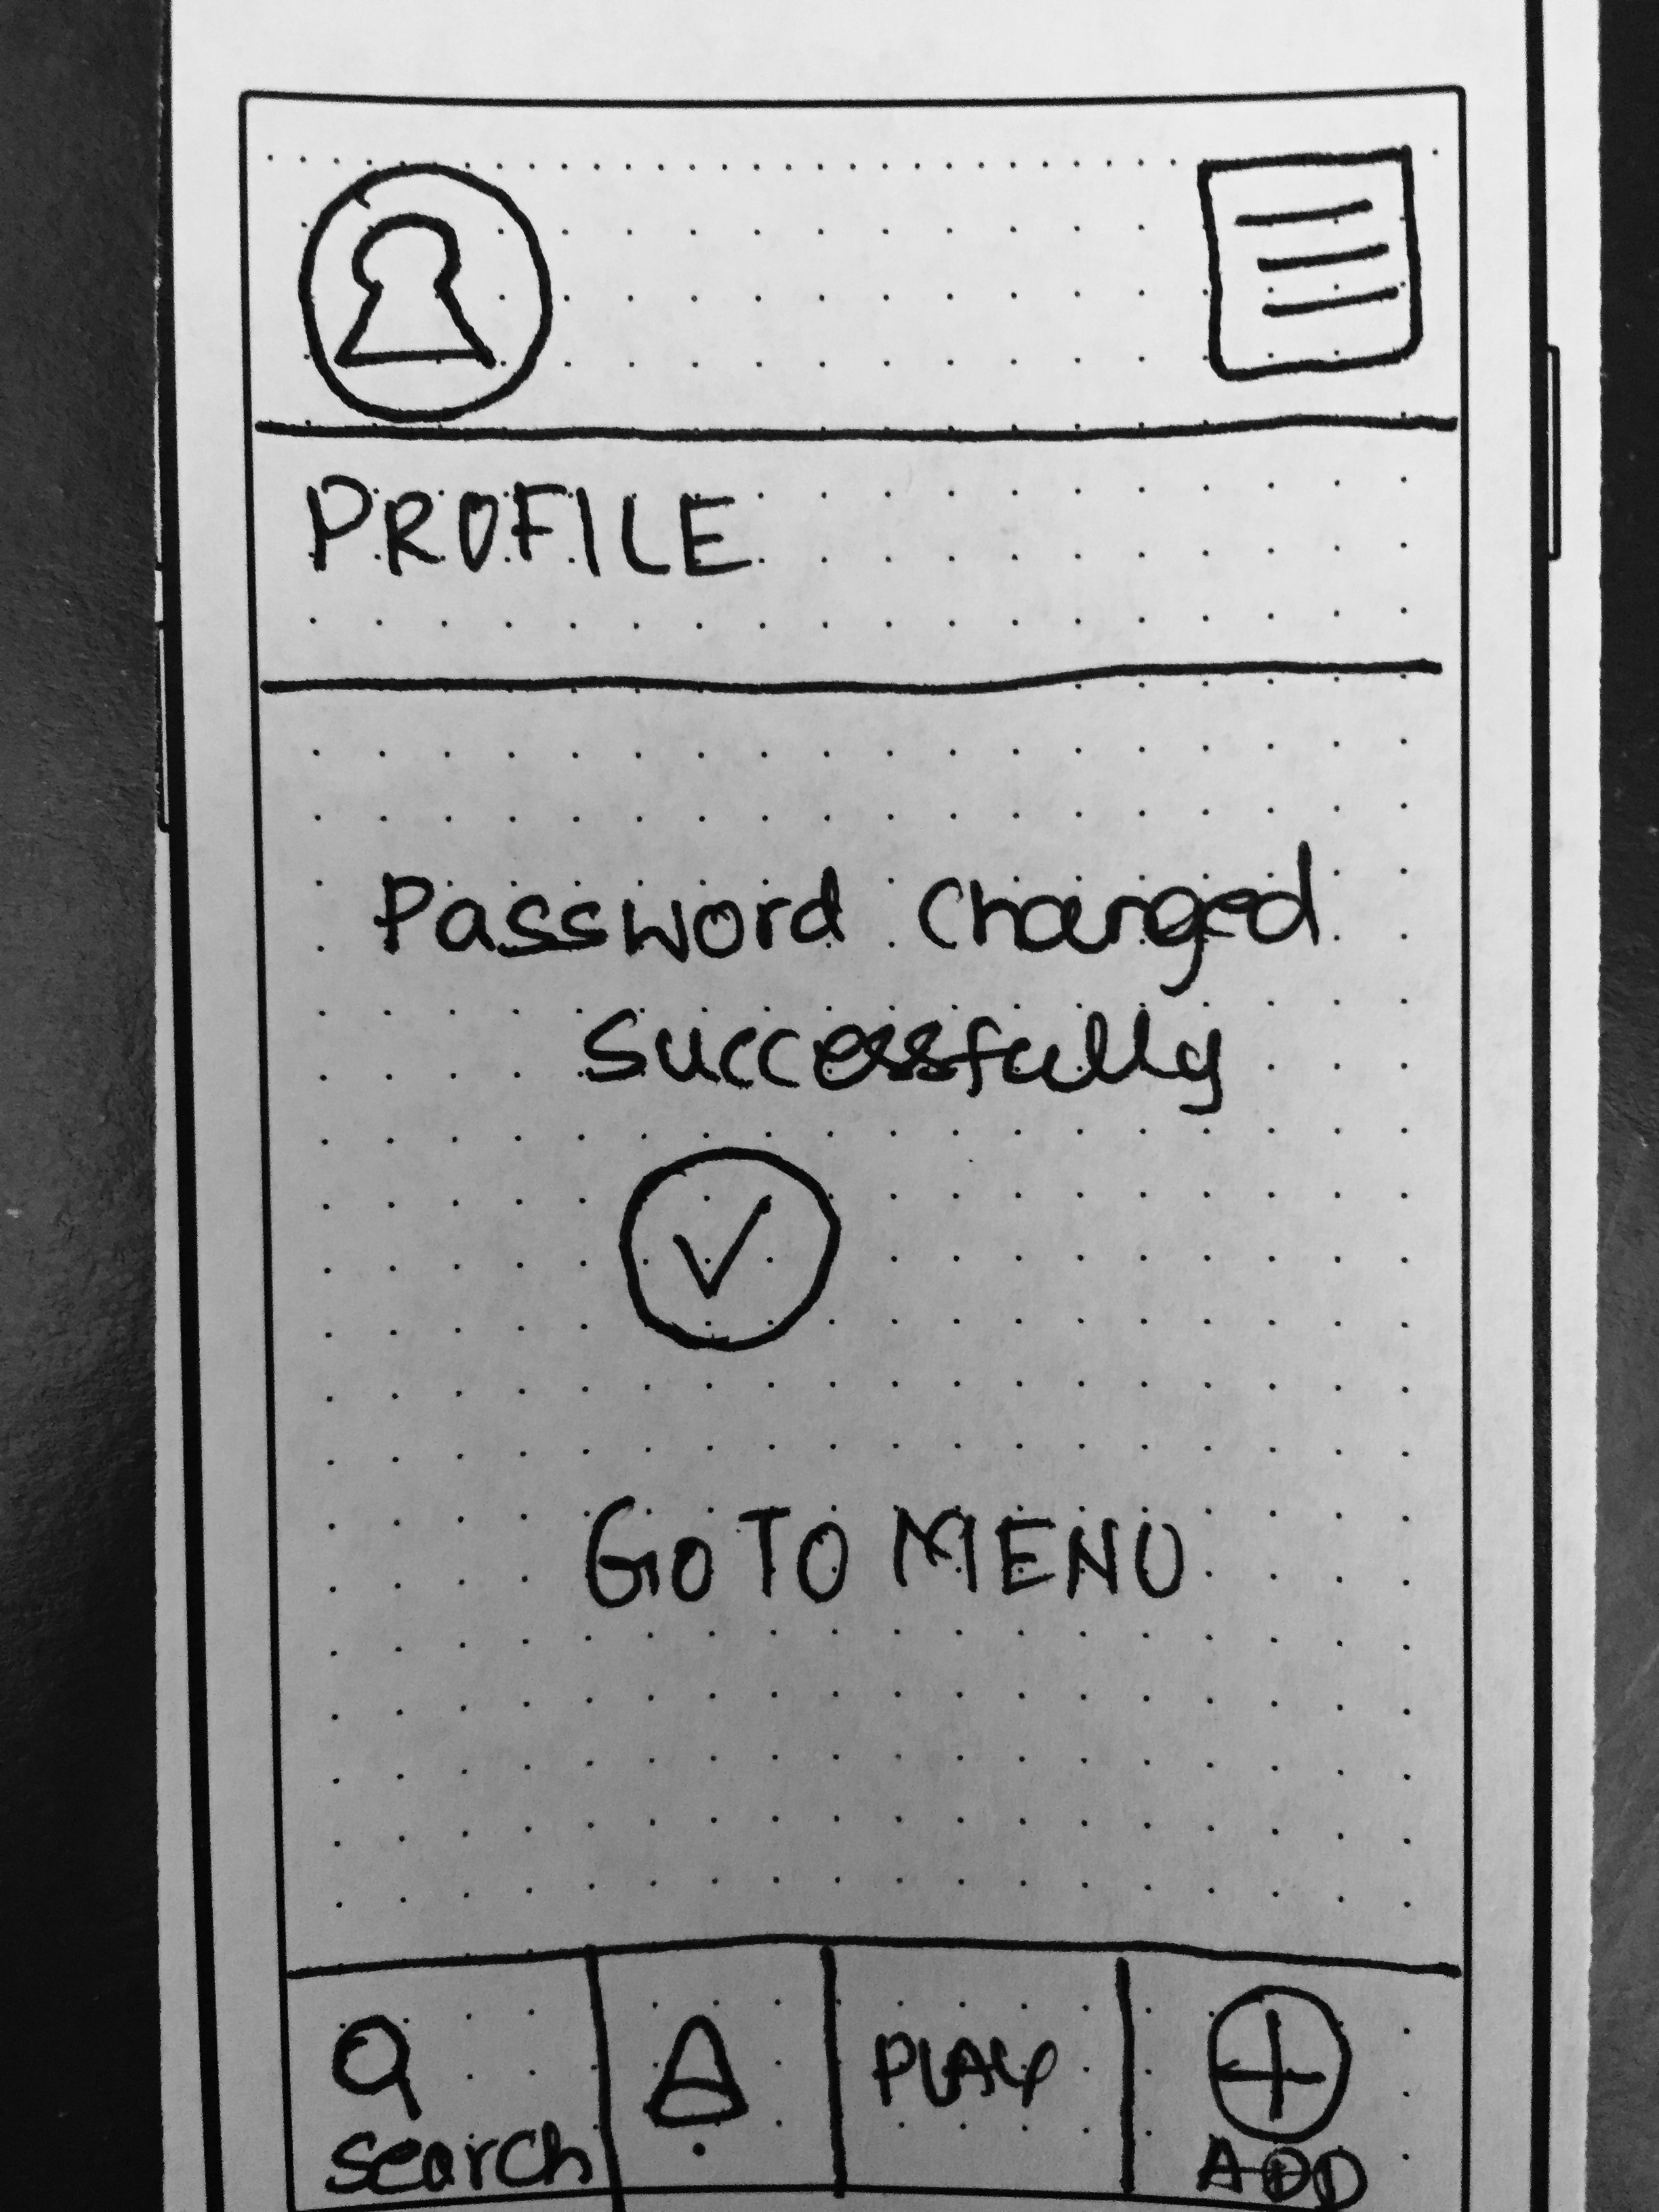 PROFILE
Password changed
successfully
GO TO MENU
search
PLAY
ADD